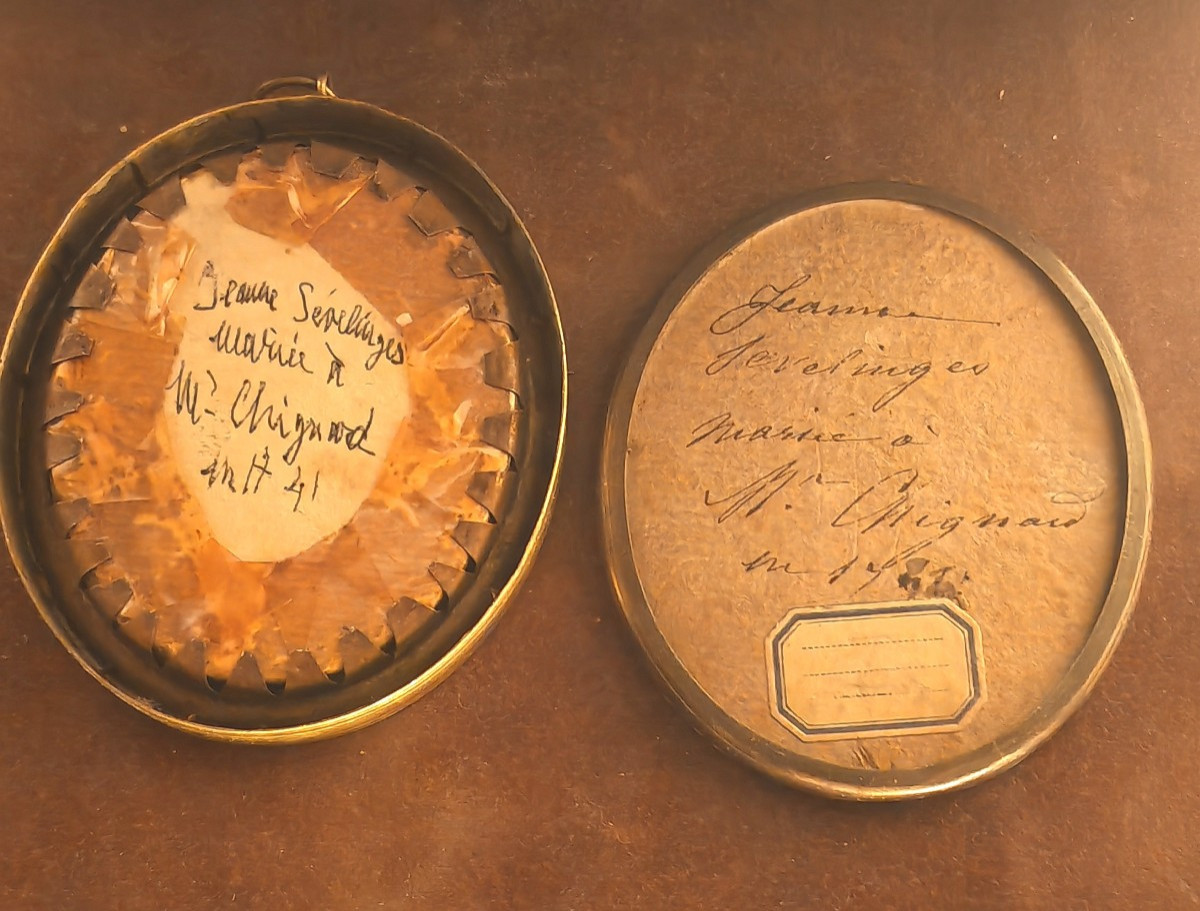 Jeanne Sévelinges
mariée à
Mr Chignard
en 17 41
Jeanne
Sevelinges
mariée à
Mr Chignard
en